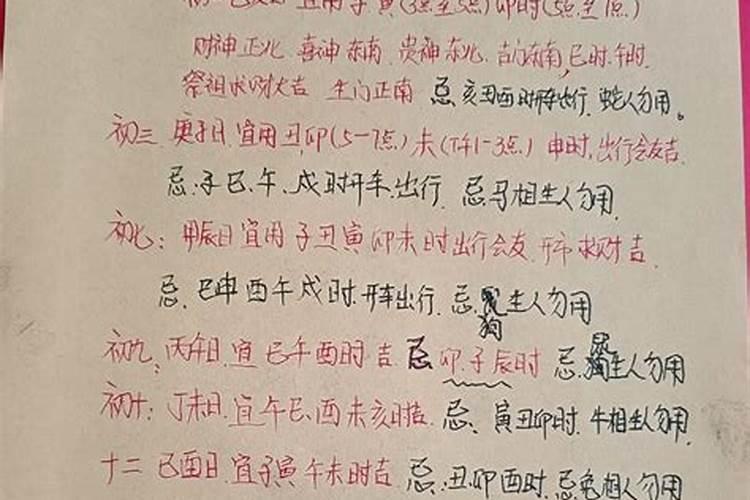 宜用子寅(3点至5点)卯时(5点至7点)
财神正北 喜神东南 贵神东北 吉门东南,巳时.午时.
祭祖求财大吉 生门正南 忌亥丑酉时开车出行 蛇人勿用。
初三 庚子日.宜用丑.卯(5-7点)未(下午1-3点.)申时.出行会友吉.
忌:子巳.午.戌时开车.出行.忌马相生人勿用.
初七:甲辰日宜用子丑寅卯未时出行会友.开市求财吉.
忌.巳申酉午戌时.开车出行.忌狗生人勿用
初九:丙午日.宜巳午酉时吉.忌卯.子辰时 忌生人勿用
初十:丁未日.宜午巳.酉未亥时吉.忌:寅丑卯时.牛相生人勿用.
十二 己酉日.宜子寅午未时吉.忌:丑.卯酉时.忌兔相人勿用